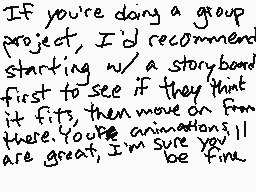 If you're doing a group
project, I'd recommend
starting w/ a storyboard
first to see if they think
it fits, then move on from
there. Your animations
are great, I'm sure you'll
be fine